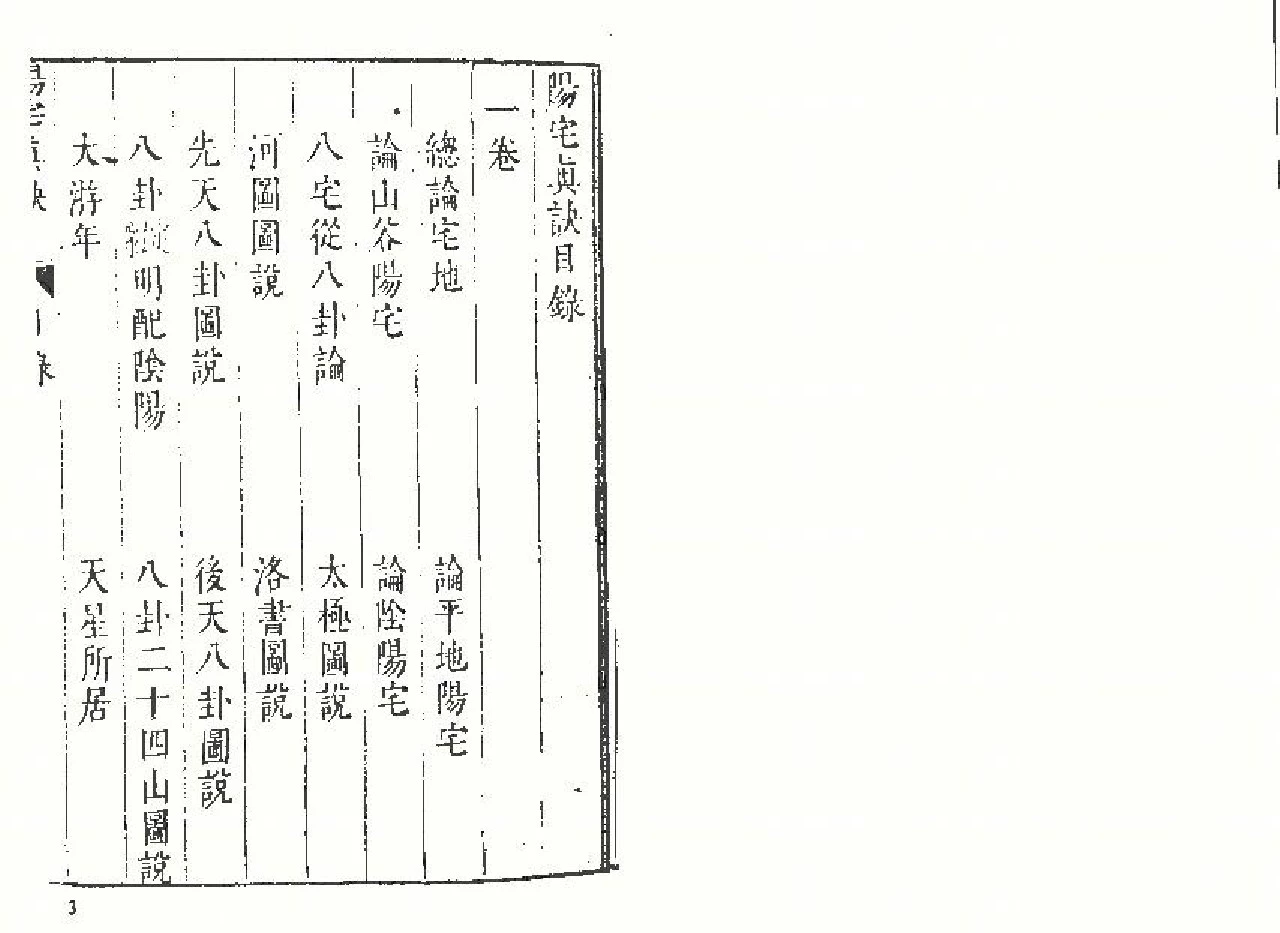 陽宅真訣目錄
一卷
總論宅地 論平地陽宅
論山谷陽宅 論陰陽宅
八宅從八卦論 太極圖說
河圖圖說 洛書圖說
先天八卦圖說 後天八卦圖說
八卦縱明配陰陽 八卦二十四山圖說
大游年 天星所居
3